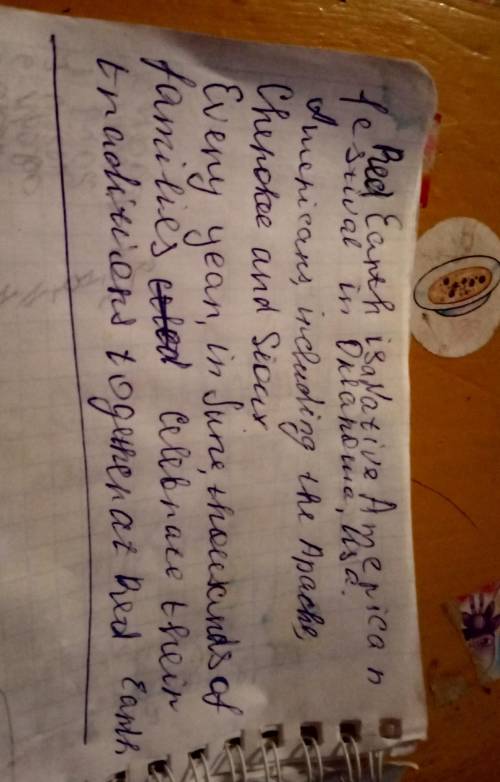 Red Earth is a Native American
festival in Oklahoma, USA.
Americans, including the Apache,
Cherokee and Sioux
Every year, in June, thousands of
families celebrate their
traditions together at Red Earth